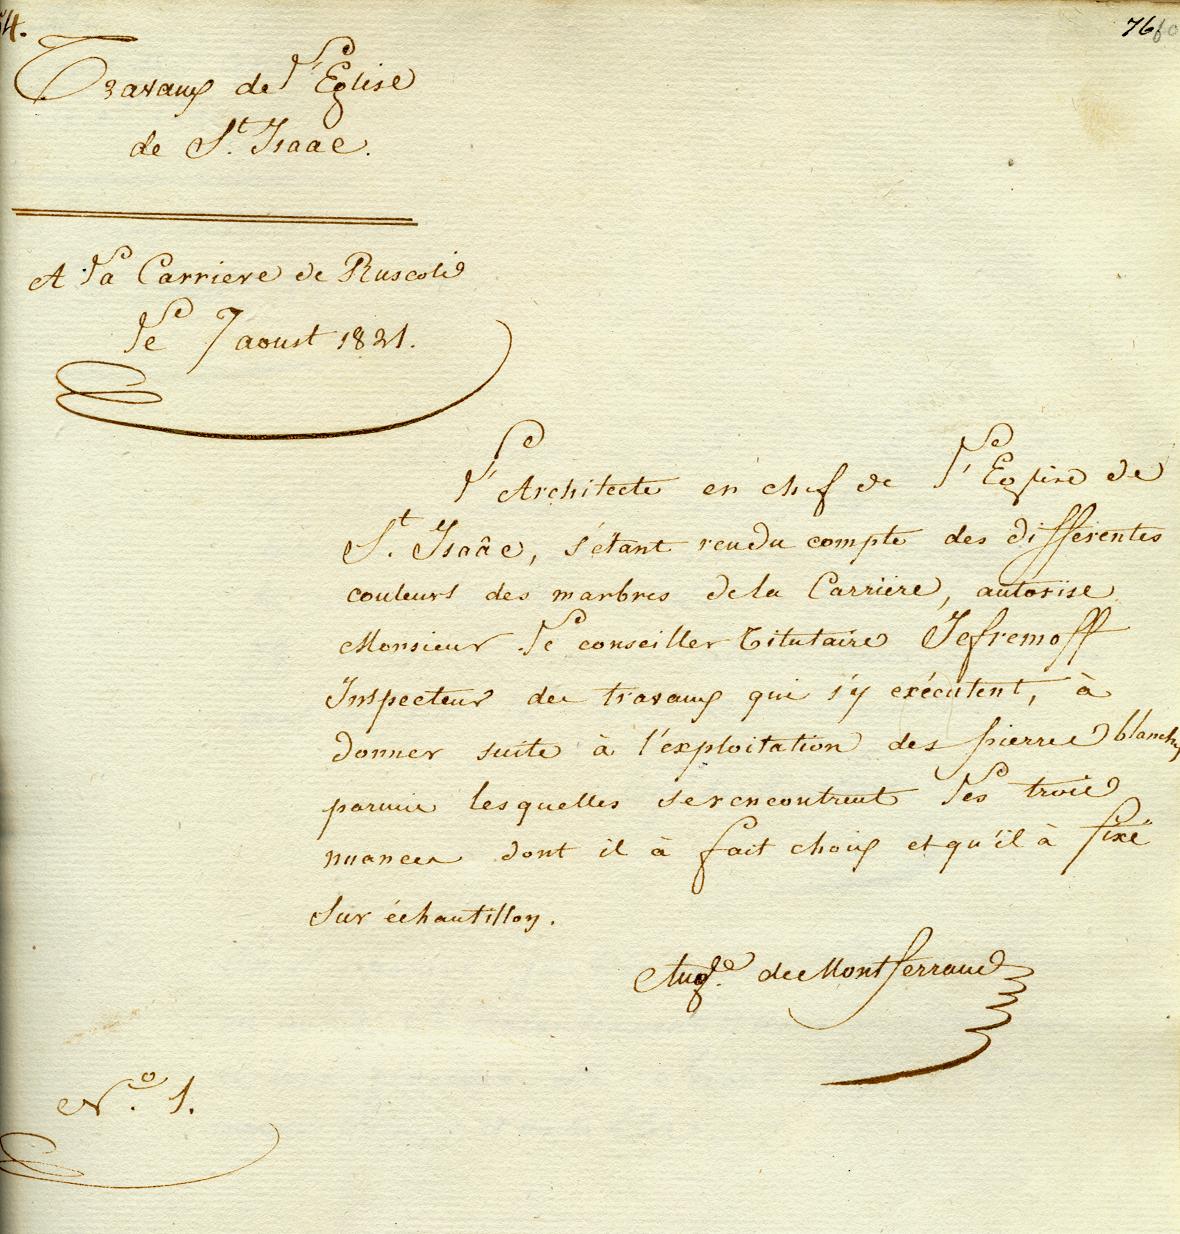 54.
7660
Travaux de l'Eglise
de St. Isaac.
A la Carriere de Ruscoli
le 7 aoust 1821.
l'Architecte en chef de l'Eglise de
St. Isaâc, s'étant rendu compte des différentes
couleurs des marbres de la Carrière, autorise
Monsieur le conseiller titulaire Jefremoff
Inspecteur des travaux qui s'y exécutent, à
donner suite à l'exploitation des pierres blanches
parmie lesquelles se rencontrent les trois
nuances dont il à fait choix et qu'il à fixé
sur échantillon.
Augte. de Montferrand
No. 1.